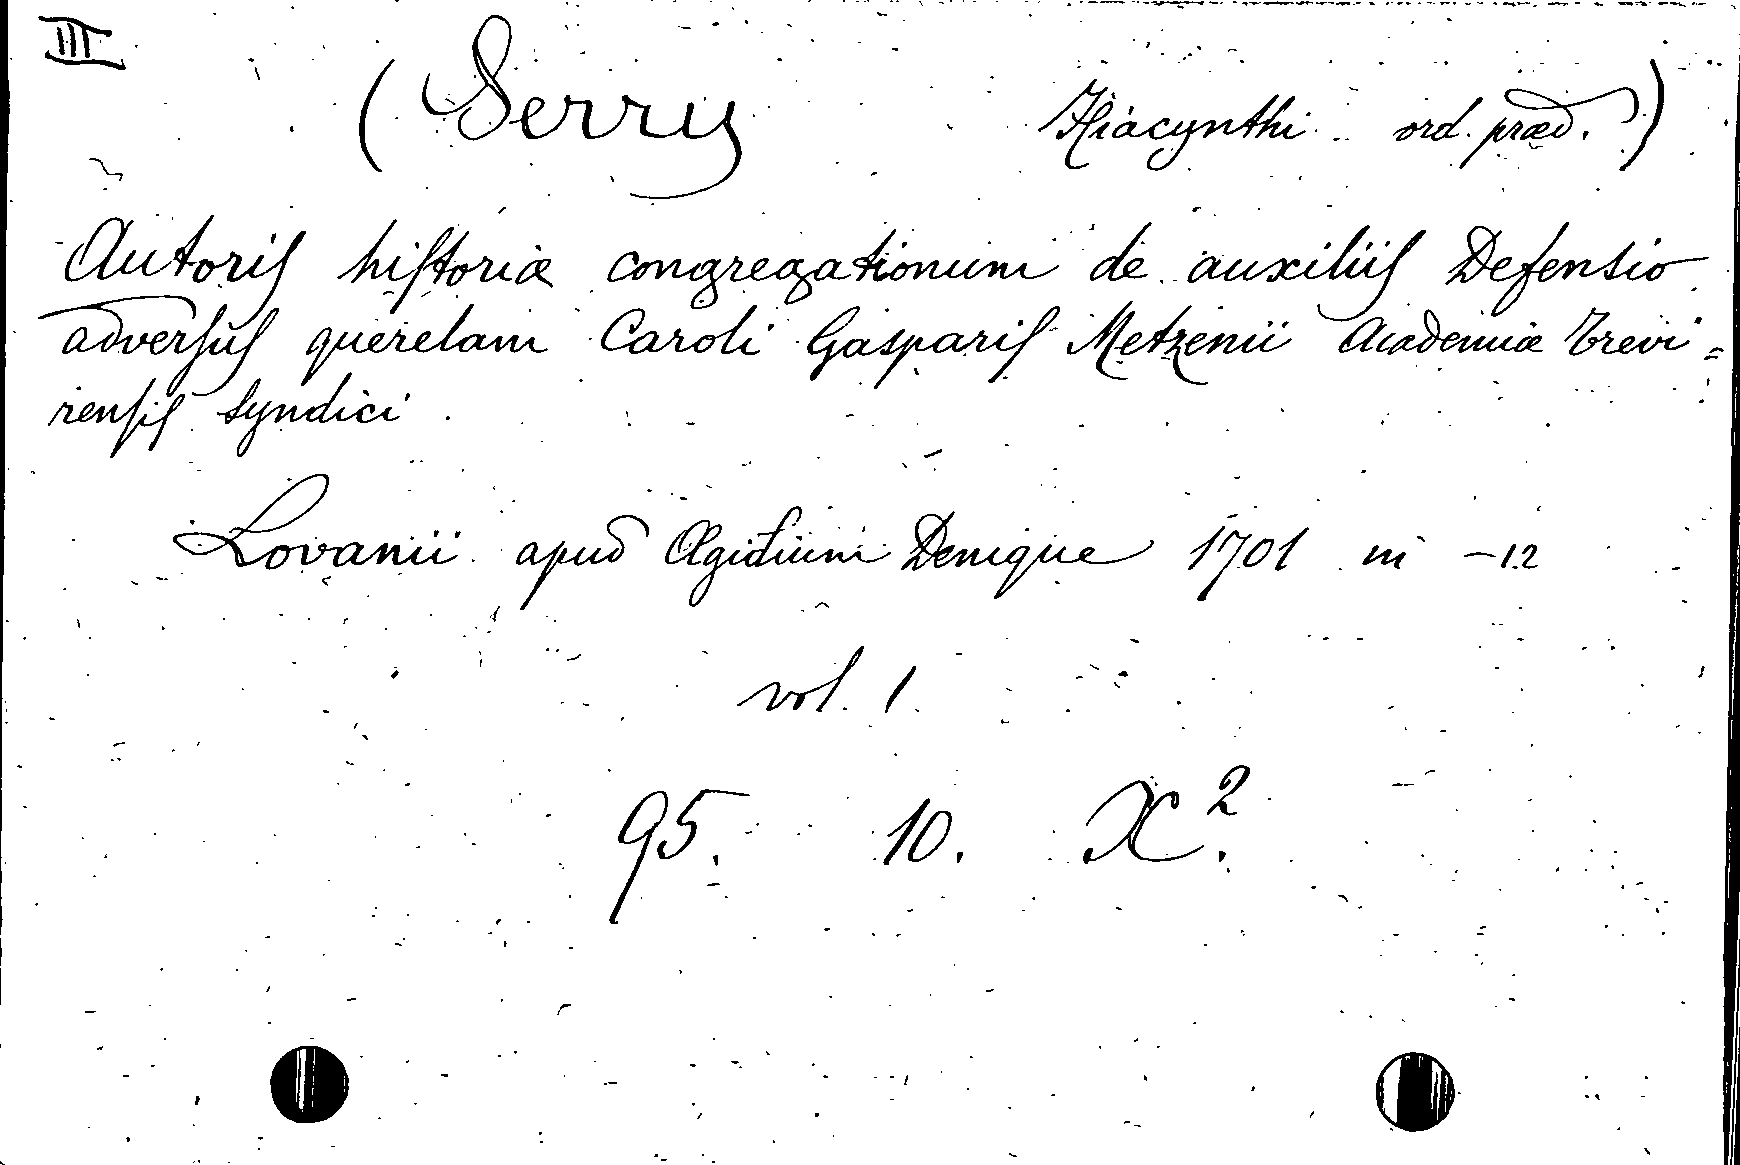 III
(Serry Hiacynthi ord. præd.)
Autoris historiæ congregationum de auxiliis Defensio
adversus querelam Caroli Gasparis Metzenii Academiæ Trevi=
rensis syndici
Lovanii apud Ægidium Denique 1701 in -12
vol. 1
95. 10. X².